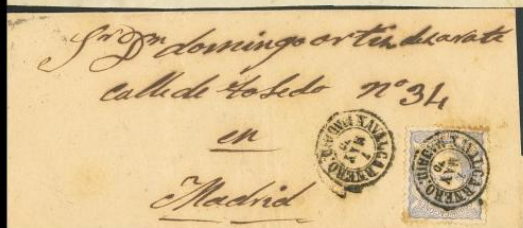 Sr Dn domingo ortiz de zarate
calle de toledo nº 34
en
Madrid
NAVALCARNERO
MADRID
NAVALCARNERO
MADRID